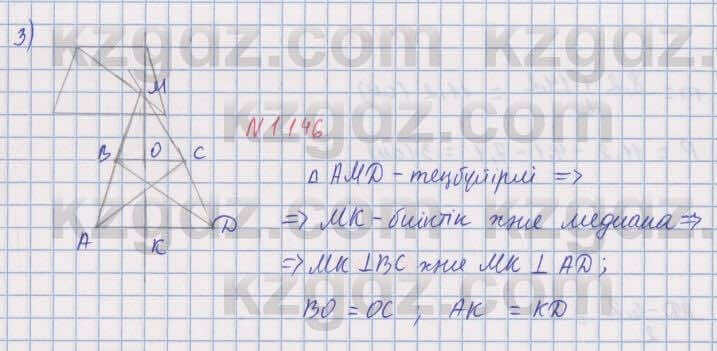 3)
kzgdz.com kzgdz.com
M
kzgdz.com
N 1.146
B O C
△ AMD - теңбүйірлі =>
kzgdz.com kzgdz.com
=> MK - биіктік және медиана =>
A K D
=> MK ⊥ BC және MK ⊥ AD;
kzgdz.com
BO = OC ; AK = KD